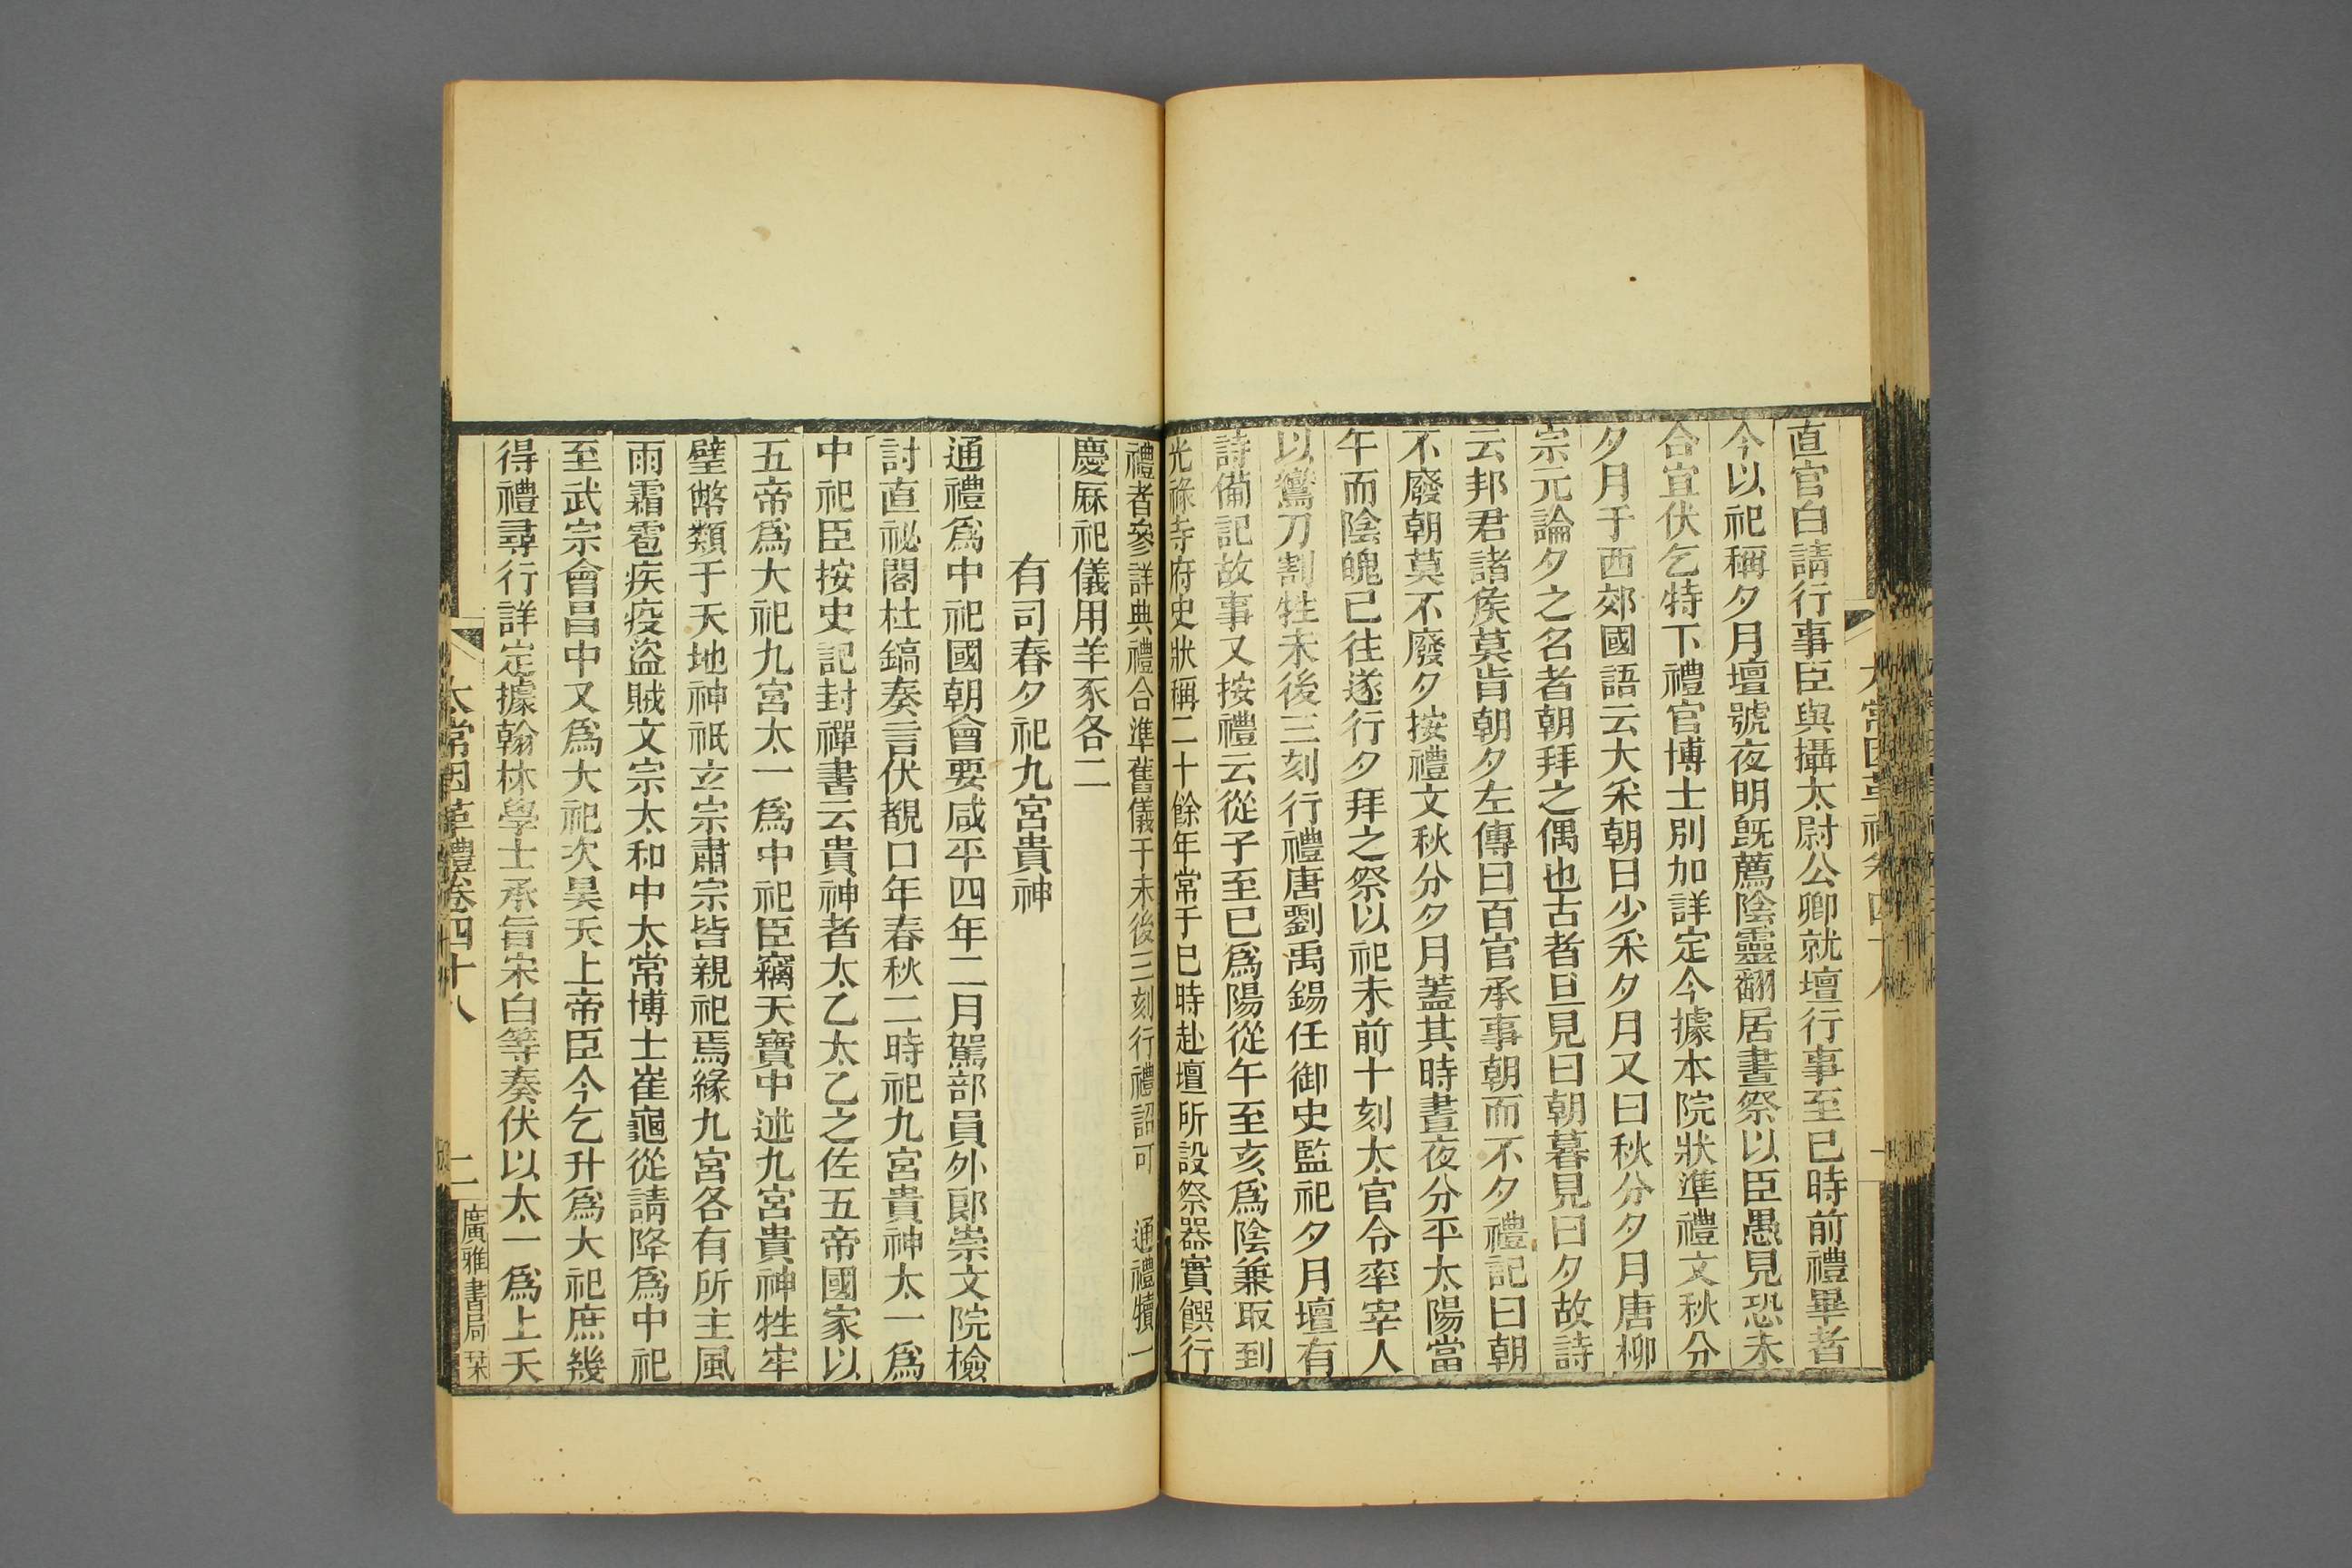 直官白請行事臣與攝太尉公卿就壇行事至巳時前禮畢者
今以祀稱夕月壇號夜明旣薦陰靈翻居晝祭以臣愚見恐未
合宜伏乞特下禮官博士別加詳定今據本院狀準禮文秋分
夕月于西郊國語云大采朝日少采夕月又曰秋分夕月唐柳
宗元論夕之名者朝拜之偶也古者旦見曰朝暮見曰夕故詩
云邦君諸矦莫肯朝夕左傳曰百官承事朝而不夕禮記曰朝
不廢朝莫不廢夕按禮文秋分夕月蓋其時晝夜分平太陽當
午而陰魄已往遂行夕拜之祭以祀未前十刻太官令率宰人
以鸞刀割牲未後三刻行禮唐劉禹錫任御史監祀夕月壇有
詩備記故事又按禮云從子至巳爲陽從午至亥爲陰兼取到
光祿寺府史狀稱二十餘年常于巳時赴壇所設祭器實饌行
禮者參詳典禮合準舊儀于未後三刻行禮詔可 通禮犢一
慶厤祀儀用羊豕各二
有司春夕祀九宮貴神
通禮爲中祀國朝會要咸平四年二月駕部員外郞崇文院檢
討直祕閣杜鎬奏言伏覩口年春秋二時祀九宮貴神太一爲
中祀臣按史記封禪書云貴神者太乙太乙之佐五帝國家以
五帝爲大祀九宮太一爲中祀臣竊天寶中述九宮貴神牲牢
璧幣類于天地神祇玄宗肅宗皆親祀焉緣九宮各有所主風
雨霜雹疾疫盜賊文宗太和中太常博士崔龜從請降爲中祀
至武宗會昌中又爲大祀次昊天上帝臣今乞升爲大祀庶幾
得禮尋行詳定據翰林學士承旨宋白等奏伏以太一爲上天
太常因革禮卷四十八
二
廣雅書局栞